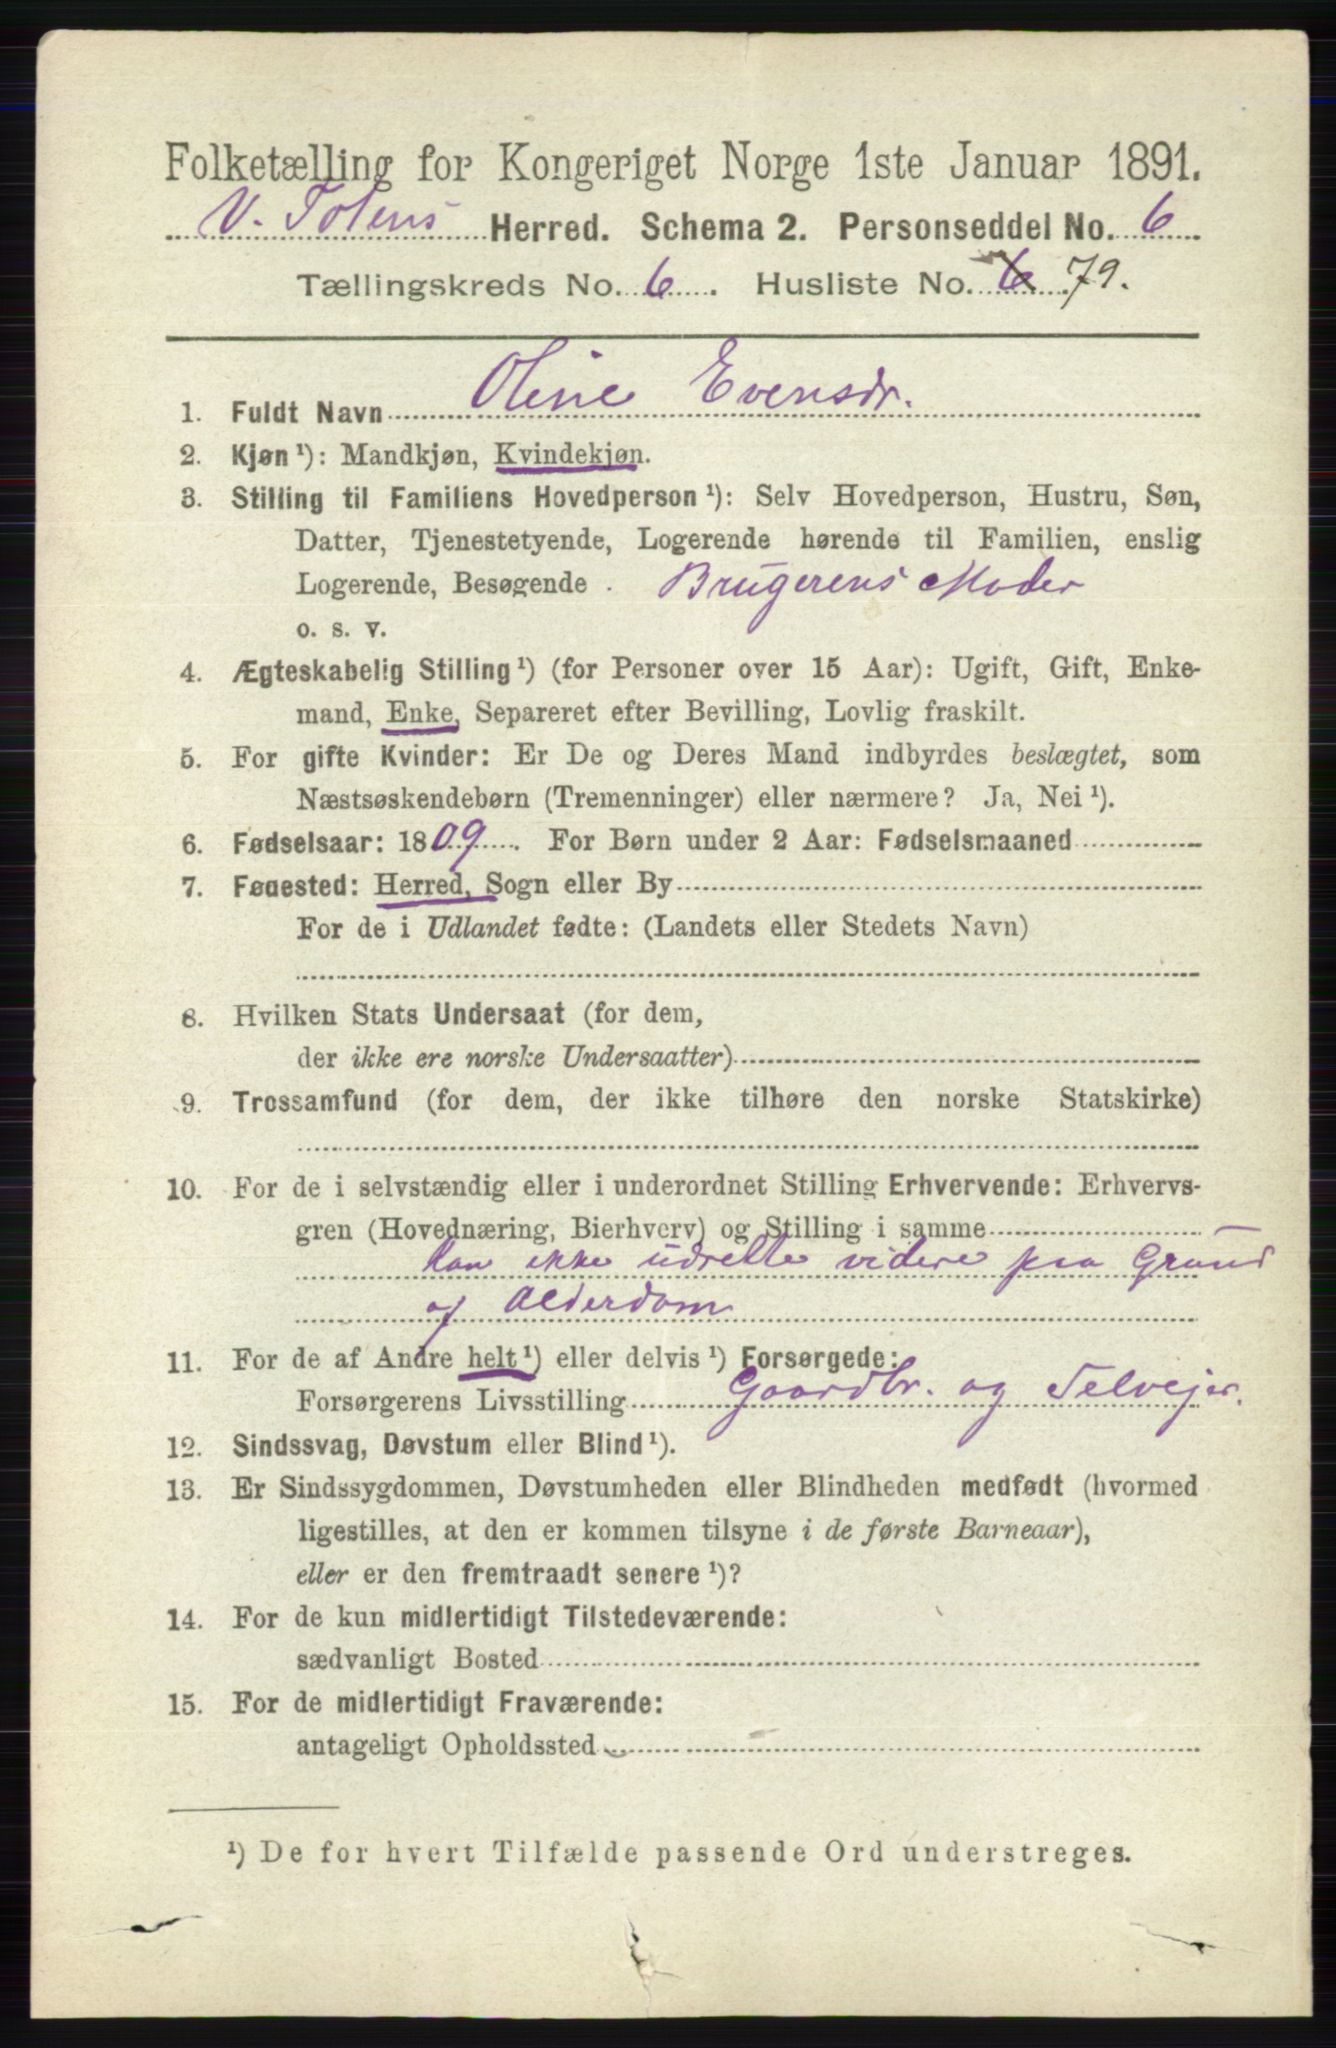 Folketælling for Kongeriget Norge 1ste Januar 1891.
V. Totens Herred. Schema 2. Personseddel No. 6
Tællingskreds No. 6. Husliste No. 6 79.
1. Fuldt Navn Oline Evensdr.
2. Kjøn ¹): Mandkjøn, Kvindekjøn.
3. Stilling til Familiens Hovedperson ¹): Selv Hovedperson, Hustru, Søn,
Datter, Tjenestetyende, Logerende hørende til Familien, enslig
Logerende, Besøgende . Brugerens Moder
o. s. v.
4. Ægteskabelig Stilling ¹) (for Personer over 15 Aar): Ugift, Gift, Enke-
mand, Enke, Separeret efter Bevilling, Lovlig fraskilt.
5. For gifte Kvinder: Er De og Deres Mand indbyrdes beslægtet, som
Næstsøskendebørn (Tremenninger) eller nærmere? Ja, Nei ¹).
6. Fødselsaar: 1809. For Børn under 2 Aar: Fødselsmaaned
7. Fødested: Herred, Sogn eller By
For de i Udlandet fødte: (Landets eller Stedets Navn)
8. Hvilken Stats Undersaat (for dem,
der ikke ere norske Undersaatter)
9. Trossamfund (for dem, der ikke tilhøre den norske Statskirke)
10. For de i selvstændig eller i underordnet Stilling Erhvervende: Erhvervs-
gren (Hovednæring, Bierhverv) og Stilling i samme
kan ikke udrette videre paa Grund
af Alderdom
11. For de af Andre helt ¹) eller delvis ¹) Forsørgede:
Forsørgerens Livsstilling Gaardbr. og Selvejer.
12. Sindssvag, Døvstum eller Blind ¹).
13. Er Sindssygdommen, Døvstumheden eller Blindheden medfødt (hvormed
ligestilles, at den er kommen tilsyne i de første Barneaar),
eller er den fremtraadt senere ¹)?
14. For de kun midlertidigt Tilstedeværende:
sædvanligt Bosted
15. For de midlertidigt Fraværende:
antageligt Opholdssted
¹) De for hvert Tilfælde passende Ord understreges.